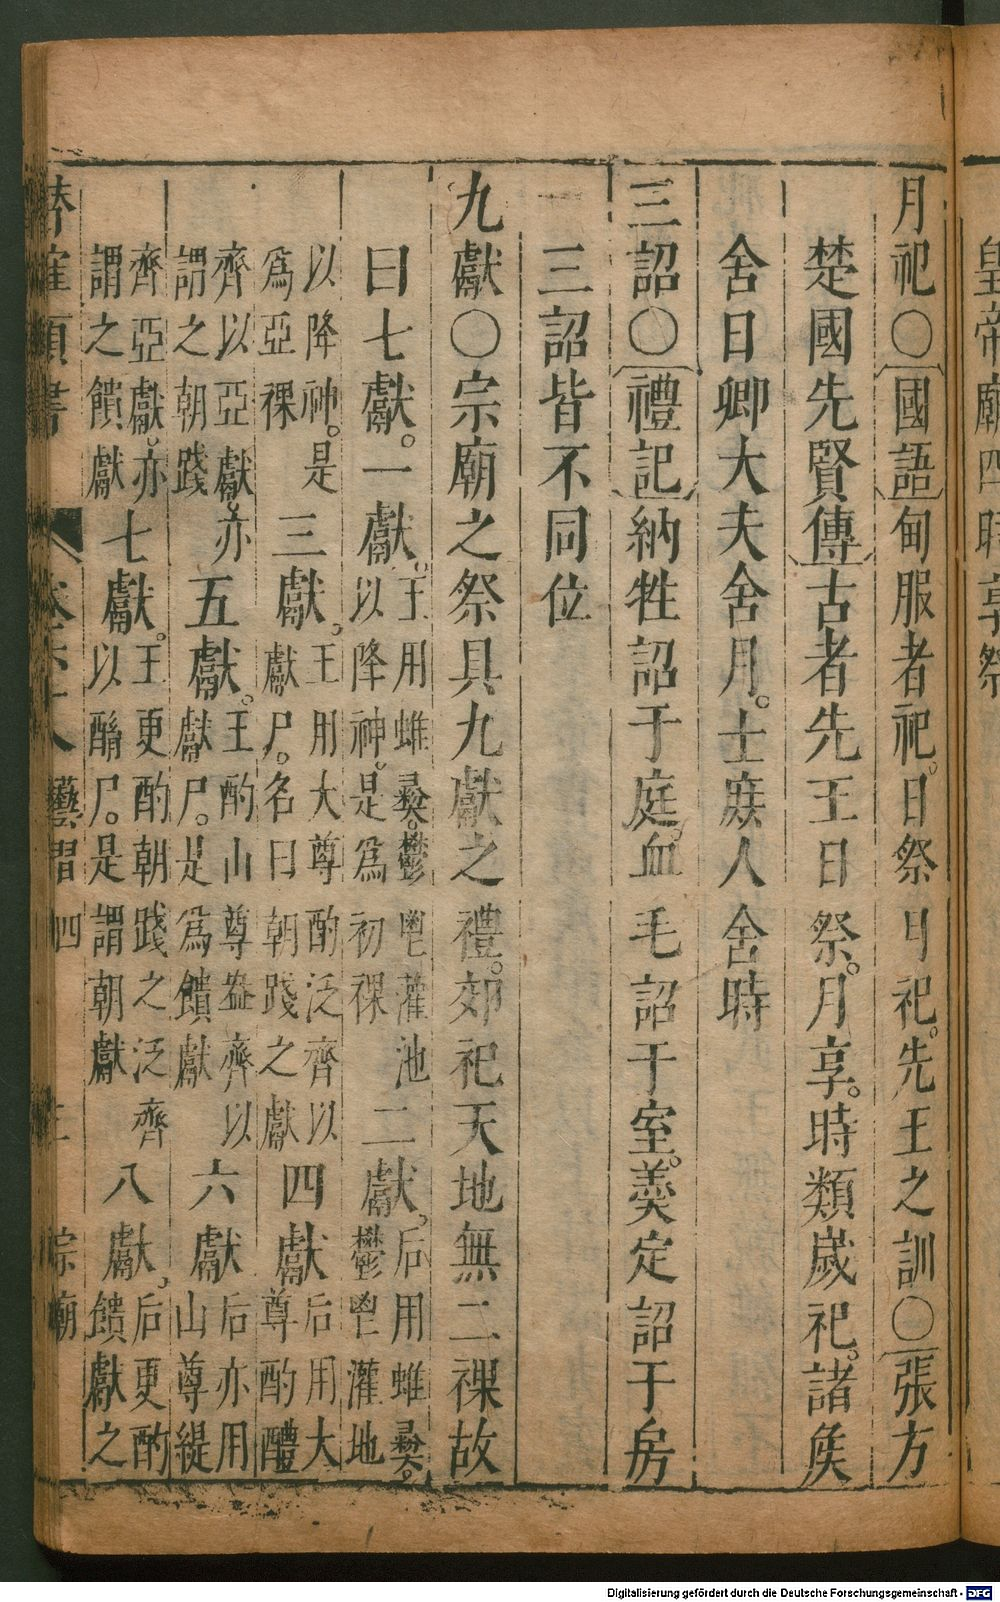 皇帝廟四時享祭
月祀○國語甸服者祀日祭月祀先王之訓○張方
楚國先賢傳古者先王日祭月享時類歲祀諸矦
舍日卿大夫舍月士庶人舍時
三詔○禮記納牲詔于庭血毛詔于室羹定詔于房
三詔皆不同位
九獻○宗廟之祭具九獻之禮郊祀天地無二祼故
曰七獻一獻王用蜼彞鬱鬯灌池以降神是爲初祼二獻后用蜼彞鬱鬯灌地
以降神是爲亞祼三獻王用大尊酌泛齊以獻尸名曰朝踐之獻四獻后用大尊酌醴
齊以亞獻亦謂之朝踐五獻王酌山尊盎齊以獻尸是爲饋獻六獻后亦用山尊緹
齊亞獻亦謂之饋獻七獻王更酌朝踐之泛齊以酳尸是謂朝獻八獻后更酌饋獻之
類書 藝習 四 宗廟
Digitalisierung gefördert durch die Deutsche Forschungsgemeinschaft - DFG